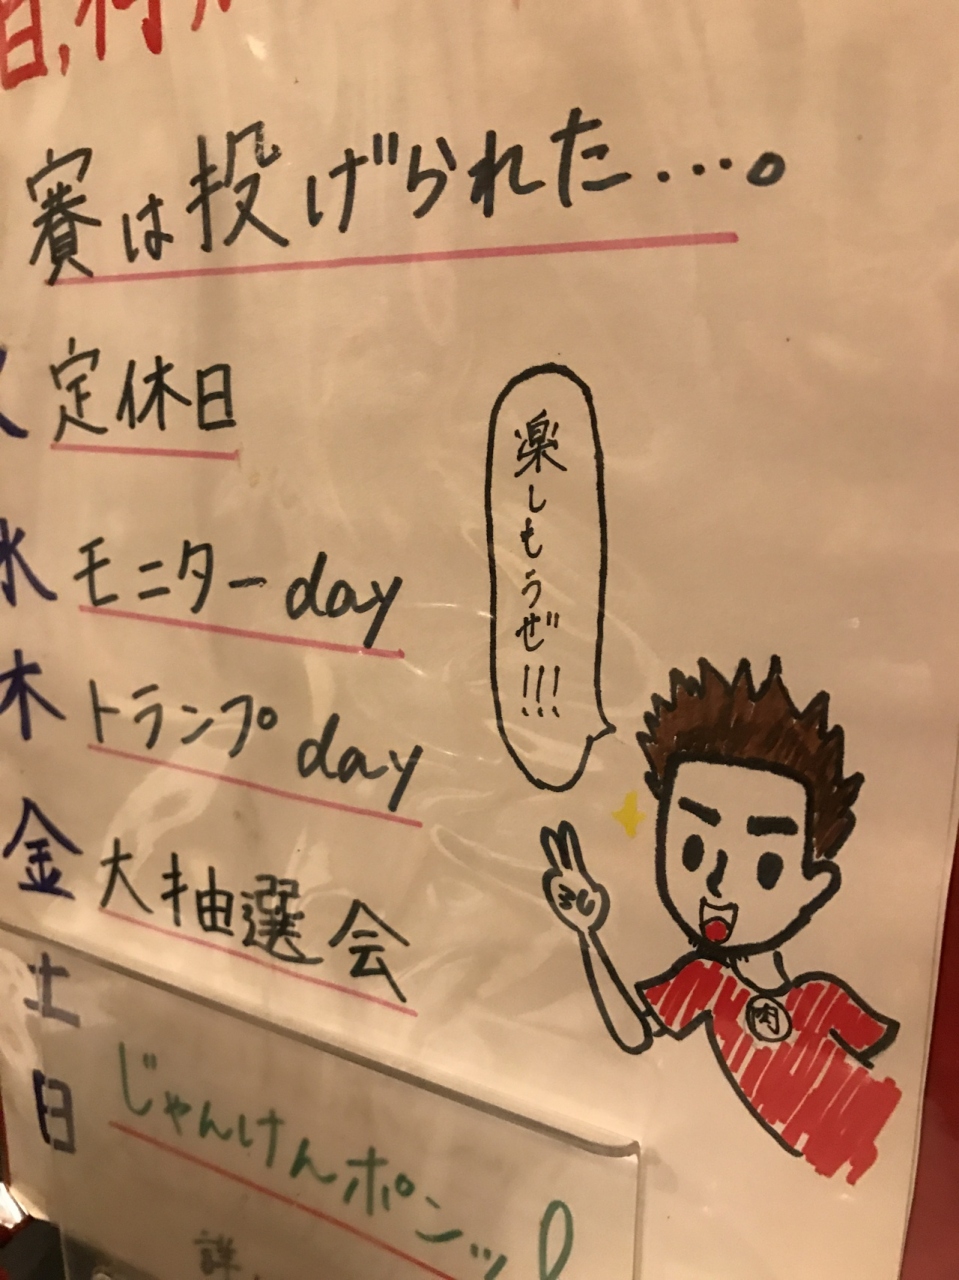 賽は投げられた…。
定休日
楽しもうぜ!!!
水 モニターday
木 トランプday
金 大抽選会
土
日 じゃんけんポンッ
肉
詳